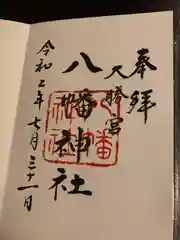 奉拝
大勝宮
八幡神社
令和二年七月三十一日